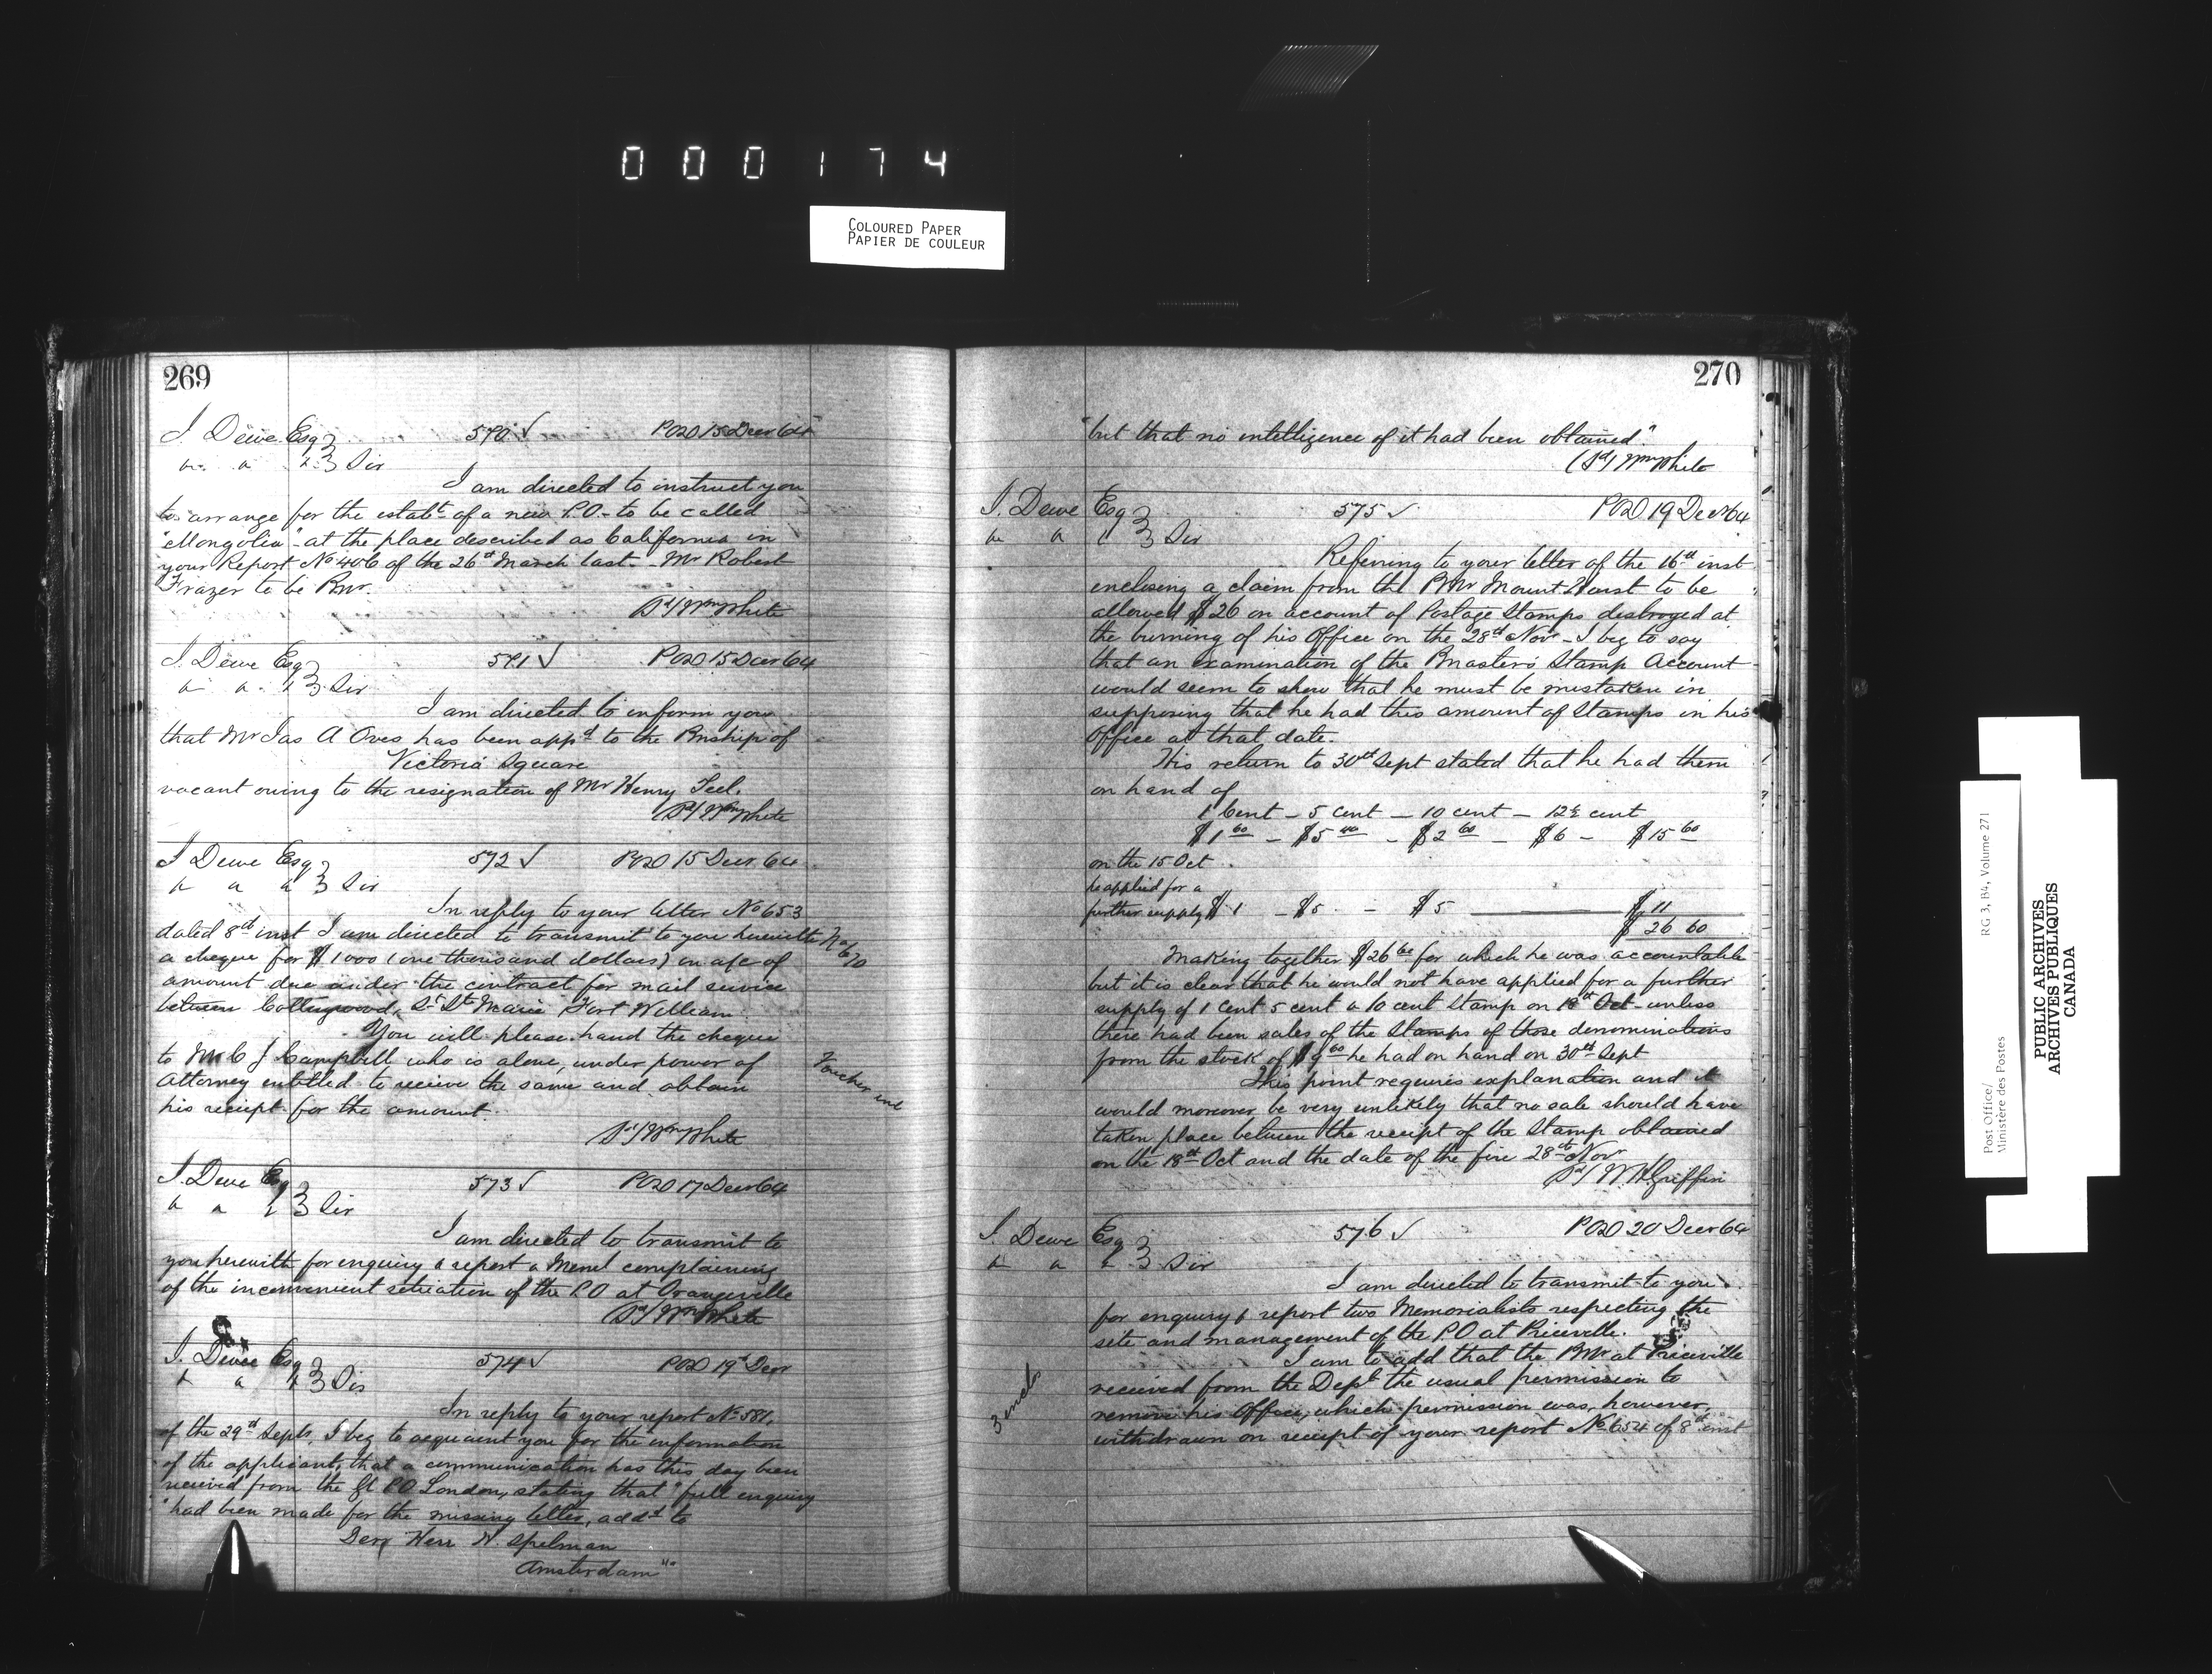 000174
COLOURED PAPER
PAPIER DE COULEUR
269
J. Dewe Esq 570 ✓ POD 15 Decr 64
" " " Sir
I am directed to instruct you
to arrange for the estabt. of a new P.O. to be called
"Mongolia" at the place described as California in
your Report No 406 of the 26th March last. Mr Robert
Frazer to be Pmr.
(Sd) Wm White
J. Dewe Esq 571 ✓ POD 15 Decr 64
" " " Sir
I am directed to inform you
that Mr Jas A Oves has been appd to the Pmship of
Victoria Square
vacant owing to the resignation of Mr Henry Feel.
(Sd) Wm White
J Dewe Esq 572 ✓ POD 15 Decr 64
" " " Sir
In reply to your letter No 653
dated 8th inst I am directed to transmit to you herewith
a cheque for $1000 (one thousand dollars) on a/c of
amount due under the contract for mail service
between Collingwood, St. Ste Marie Fort William
You will please hand the cheque
to Mr C J Campbell who is alone, under power of
Attorney entitled to recieve the same and obtain
his reciept for the amount.
(Sd) Wm White
No 670
Voucher encl
J. Dewe Esq 573 ✓ POD 17 Decr 64
" " " Sir
I am directed to transmit to
you herewith for enquiry & report a Meml complaining
of the inconvenient situation of the P.O at Orangeville
(Sd) Wm White
J. Dewe Esq 574 ✓ POD 19th Decr
" " " Sir
In reply to your report No 581,
of the 29th Septr, I beg to acquaint you for the information
of the applicant, that a communication has this day been
received from the Gl P.O London, stating that "full enquiry
"had been made for the missing letter, addd to
Herr N. Spelman
Amsterdam"
270
"but that no intelligence of it had been obtained".
(Sd) Wm White
J. Dewe Esq 575 ✓ POD 19 Decr 64
" " " Sir
Refering to your letter of the 16th inst
enclosing a claim from the PMr Mount Hurst to be
allowed $26 on account of Postage Stamps destroyed at
the burning of his Office on the 28th Novr - I beg to say
that an examination of the Pmaster's Stamp Account
would seem to show that he must be mistaken in
supposing that he had this amount of Stamps in his
Office at that date.
His return to 30th Sept stated that he had them
on hand of
1 Cent - 5 cent - 10 cent - 12½ cent
$1 60 - $5 40 - $2 60 - $6 - $15 60
on the 15 Oct
he applied for a
further supply $1 - $5 - $5 $11
$26 60
Making together $26 60 for which he was accountable
but it is clear that he would not have applied for a further
supply of 1 Cent 5 cent & 10 cent Stamp on 18th Oct unless
there had been sales of the Stamps of those denominations
from the stock of $9 60 he had on hand on 30th Sept
This point requires explanation and it
would moreover be very unlikely that no sale should have
taken place between the receipt of the Stamp obtained
on the 18th Oct and the date of the fire 28th Novr
(Sd) W H Griffin
J. Dewe Esq 576 ✓ POD 20 Decr 64
" " " Sir
I am directed to transmit to you
for enquiry & report two Memorialists respecting the
site and management of the P.O at Priceville.
I am to add that the PMr at Priceville
received from the Dept the usual permission to
remove his Office, which permission was, however,
withdrawn on receipt of your report No 654 of 8th inst
3 encls
Post Office/
Ministère des Postes
RG 3, B34, Volume 271
PUBLIC ARCHIVES
ARCHIVES PUBLIQUES
CANADA